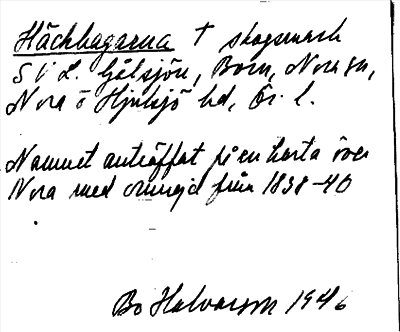 Häckhagarna † skogsmark
S V L. Gälsjön, Born, Nora sn,
Nora o Hjulsjö hd, Ör. l.
Namnet anträffat på en karta över
Nora med omnejd från 1838-40
Bo Halvarson 1946